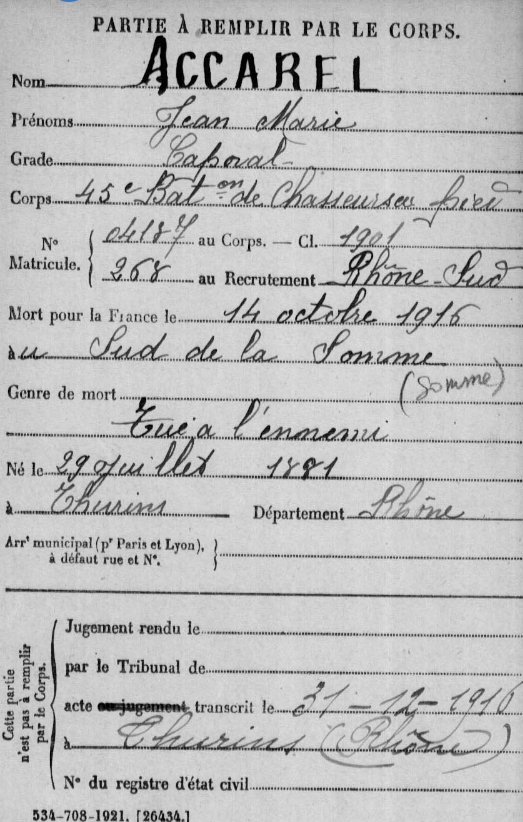 PARTIE À REMPLIR PAR LE CORPS.
Nom ACCAREL
Prénoms Jean Marie
Grade Caporal
Corps 45e Bat.on de Chasseurs à pied
N° Matricule. { 04187 au Corps. — Cl. 1901
268 au Recrutement Rhône-Sud
Mort pour la France le 14 octobre 1916
àu Sud de la Somme
(Somme)
Genre de mort
Tué à l'ennemi
Né le 29 Juillet 1881
à Thurins Département Rhône
Arrt municipal (pr Paris et Lyon),
à défaut rue et N°.
Cette partie n'est pas à remplir par le Corps.
Jugement rendu le
par le Tribunal de
acte ou jugement transcrit le 31-12-1916
à Thurins (Rhône)
N° du registre d'état civil
534-708-1921. [26434.]